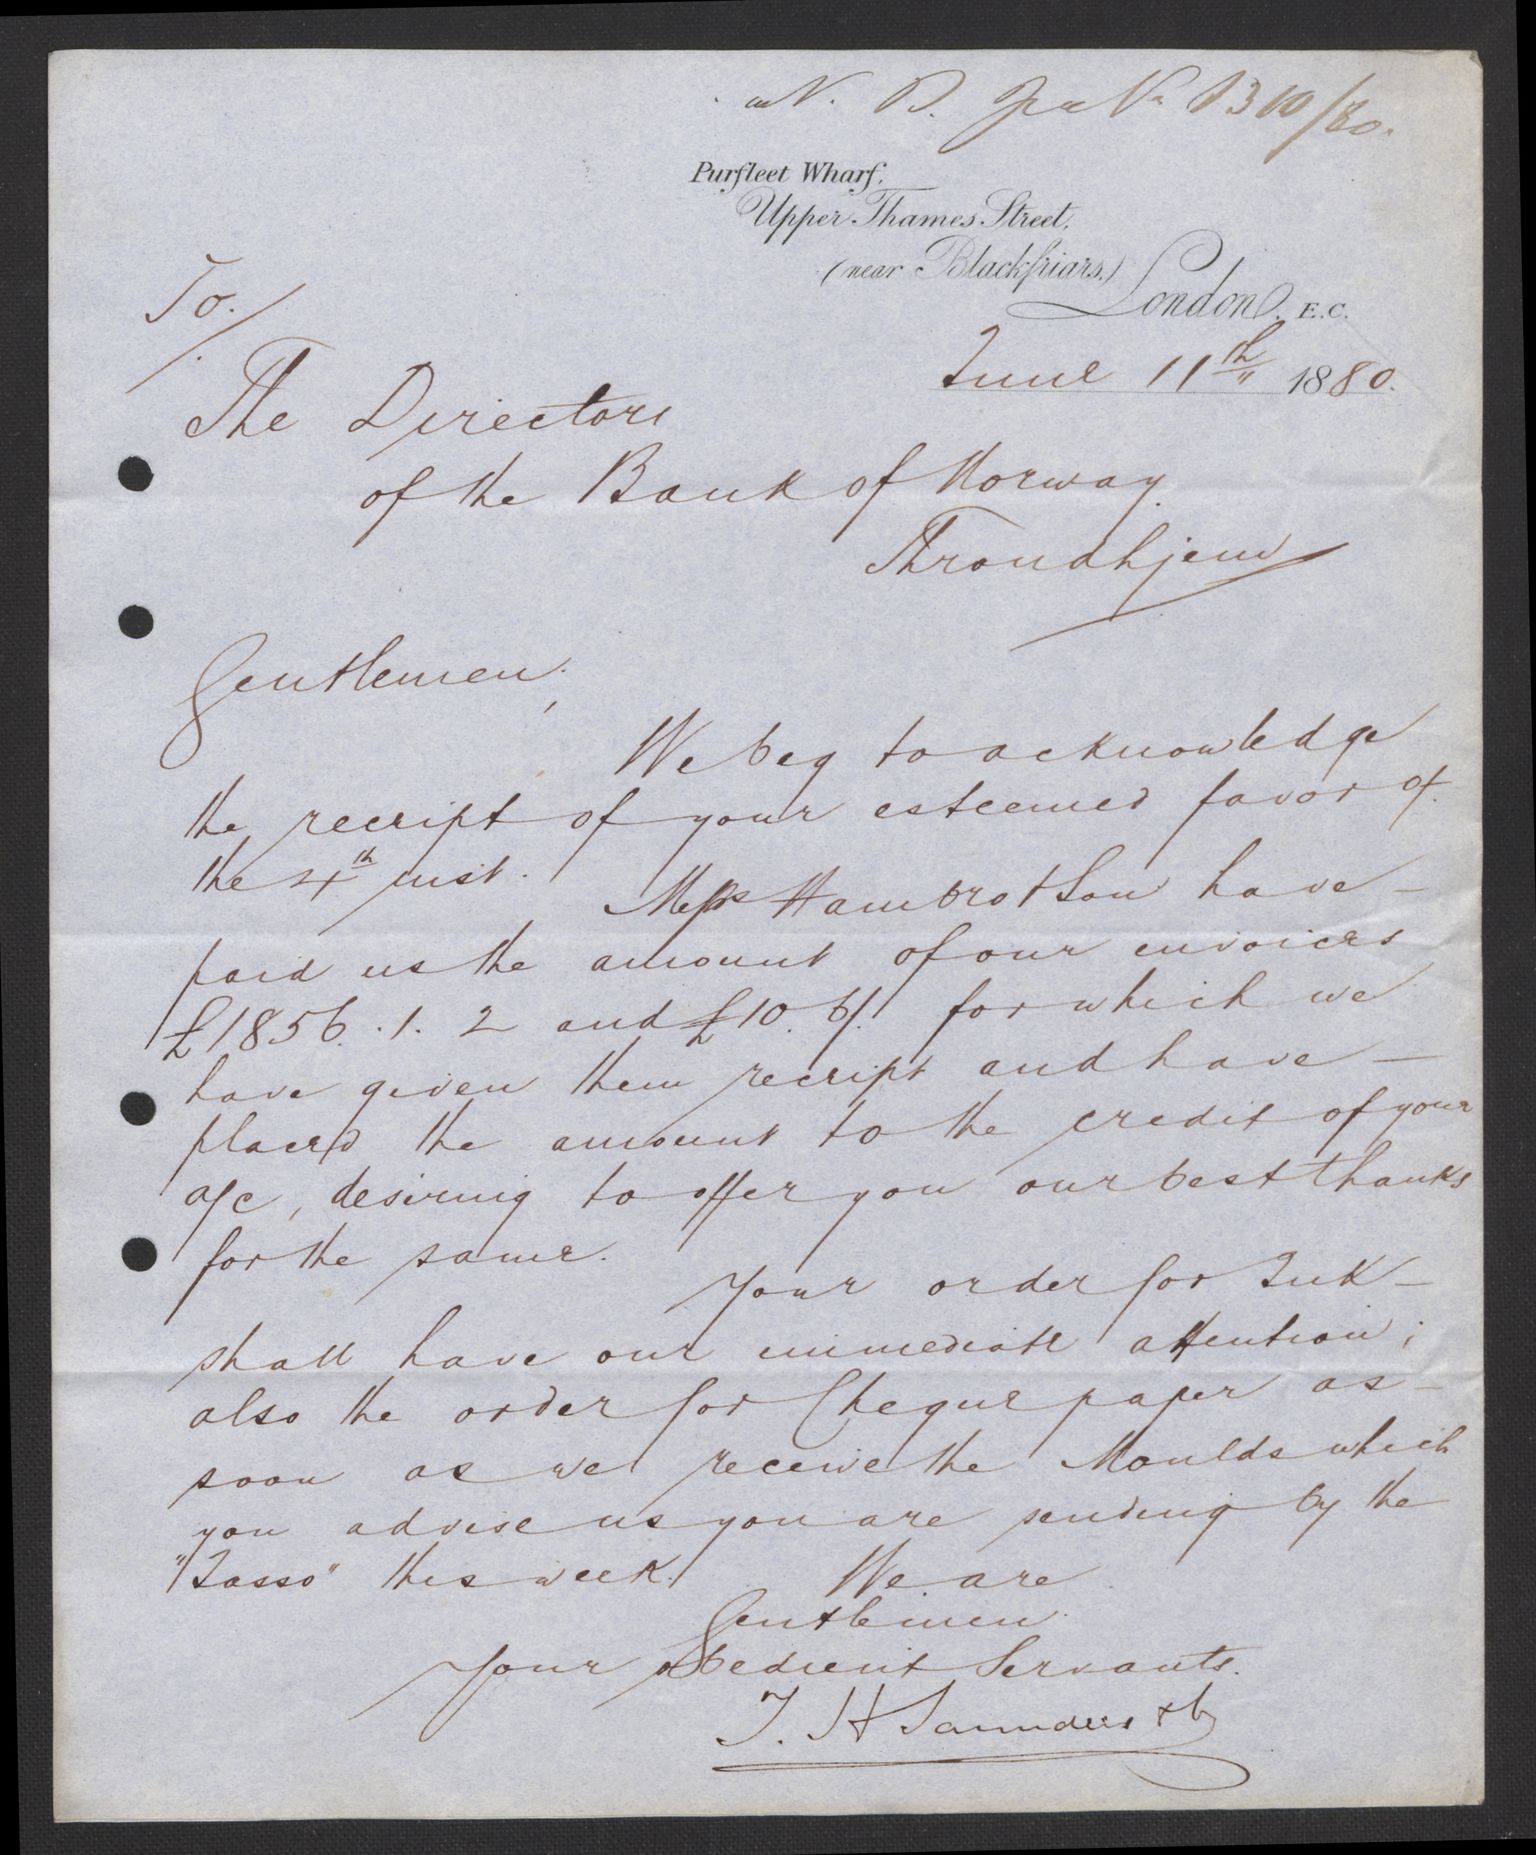 N. B. 310/80.
Purfleet Wharf,
Upper Thames Street,
(near Blackfriars.)
London, E.C.
To./.
June 11th 1880.
The Directors
of the Bank of Norway
Throndhjem
Gentlemen,
We beg to acknowledge
the receipt of your esteemed favor of
the 4th inst. Messrs Hambro & Son have
paid us the amount of our invoices
£1856.1.2 and £10.6/. for which we
have given them receipt and have
placed the amount to the credit of your
a/c, desiring to offer you our best thanks
for the same.
Your order for Ink
shall have our immediate attention;
also the order for Cheque paper as
soon as we receive the Moulds which
you advise us you are sending by the
"Tasso" this week. We are
Gentlemen.
Your obedient Servants.
T. H Saunders & Co